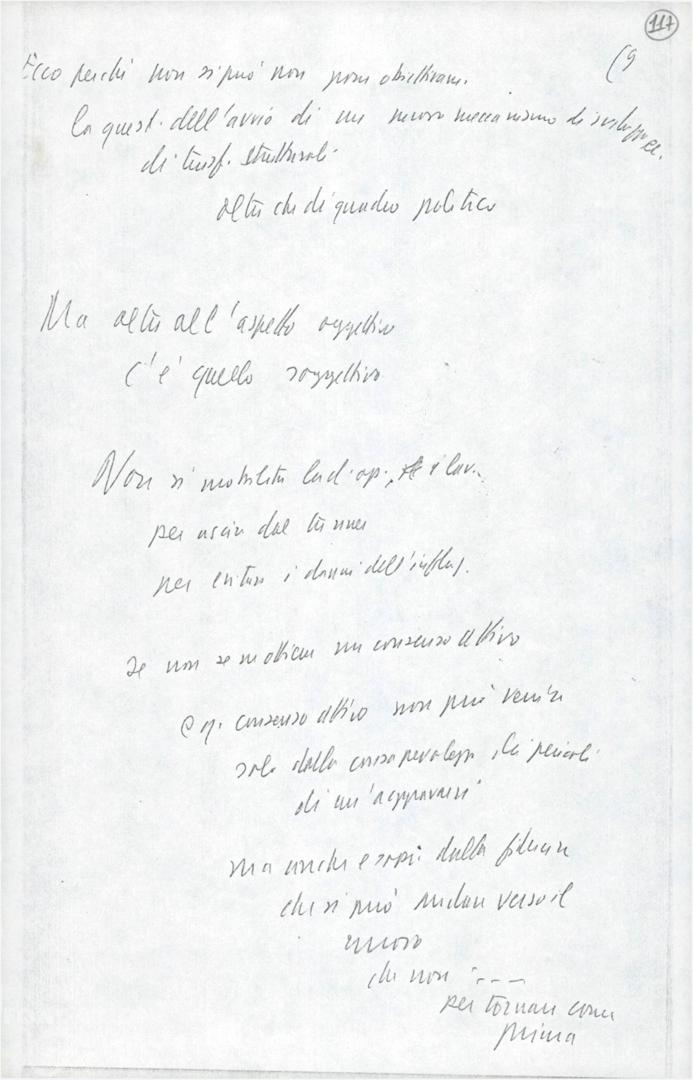 117
(9
Ecco perché non si può non porre obiettivam.
la quest. dell'avvio di un nuovo meccanismo di sviluppo e
di trasf. strutturali
oltre che di quadro politico
Ma oltre all'aspetto oggettivo
c'è quello soggettivo
Non si mobilita la cl. op., i lav.
per uscire dal tunnel
per evitare i danni dell'inflaz.
se non se ne ottiene un consenso attivo
e q. consenso attivo non può venire
solo dalla consapevolezza dei pericoli
di un'aggravarsi
ma anche e sopr. dalla fiducia
che si può andare verso il
nuovo
che non ---
per tornare come
prima